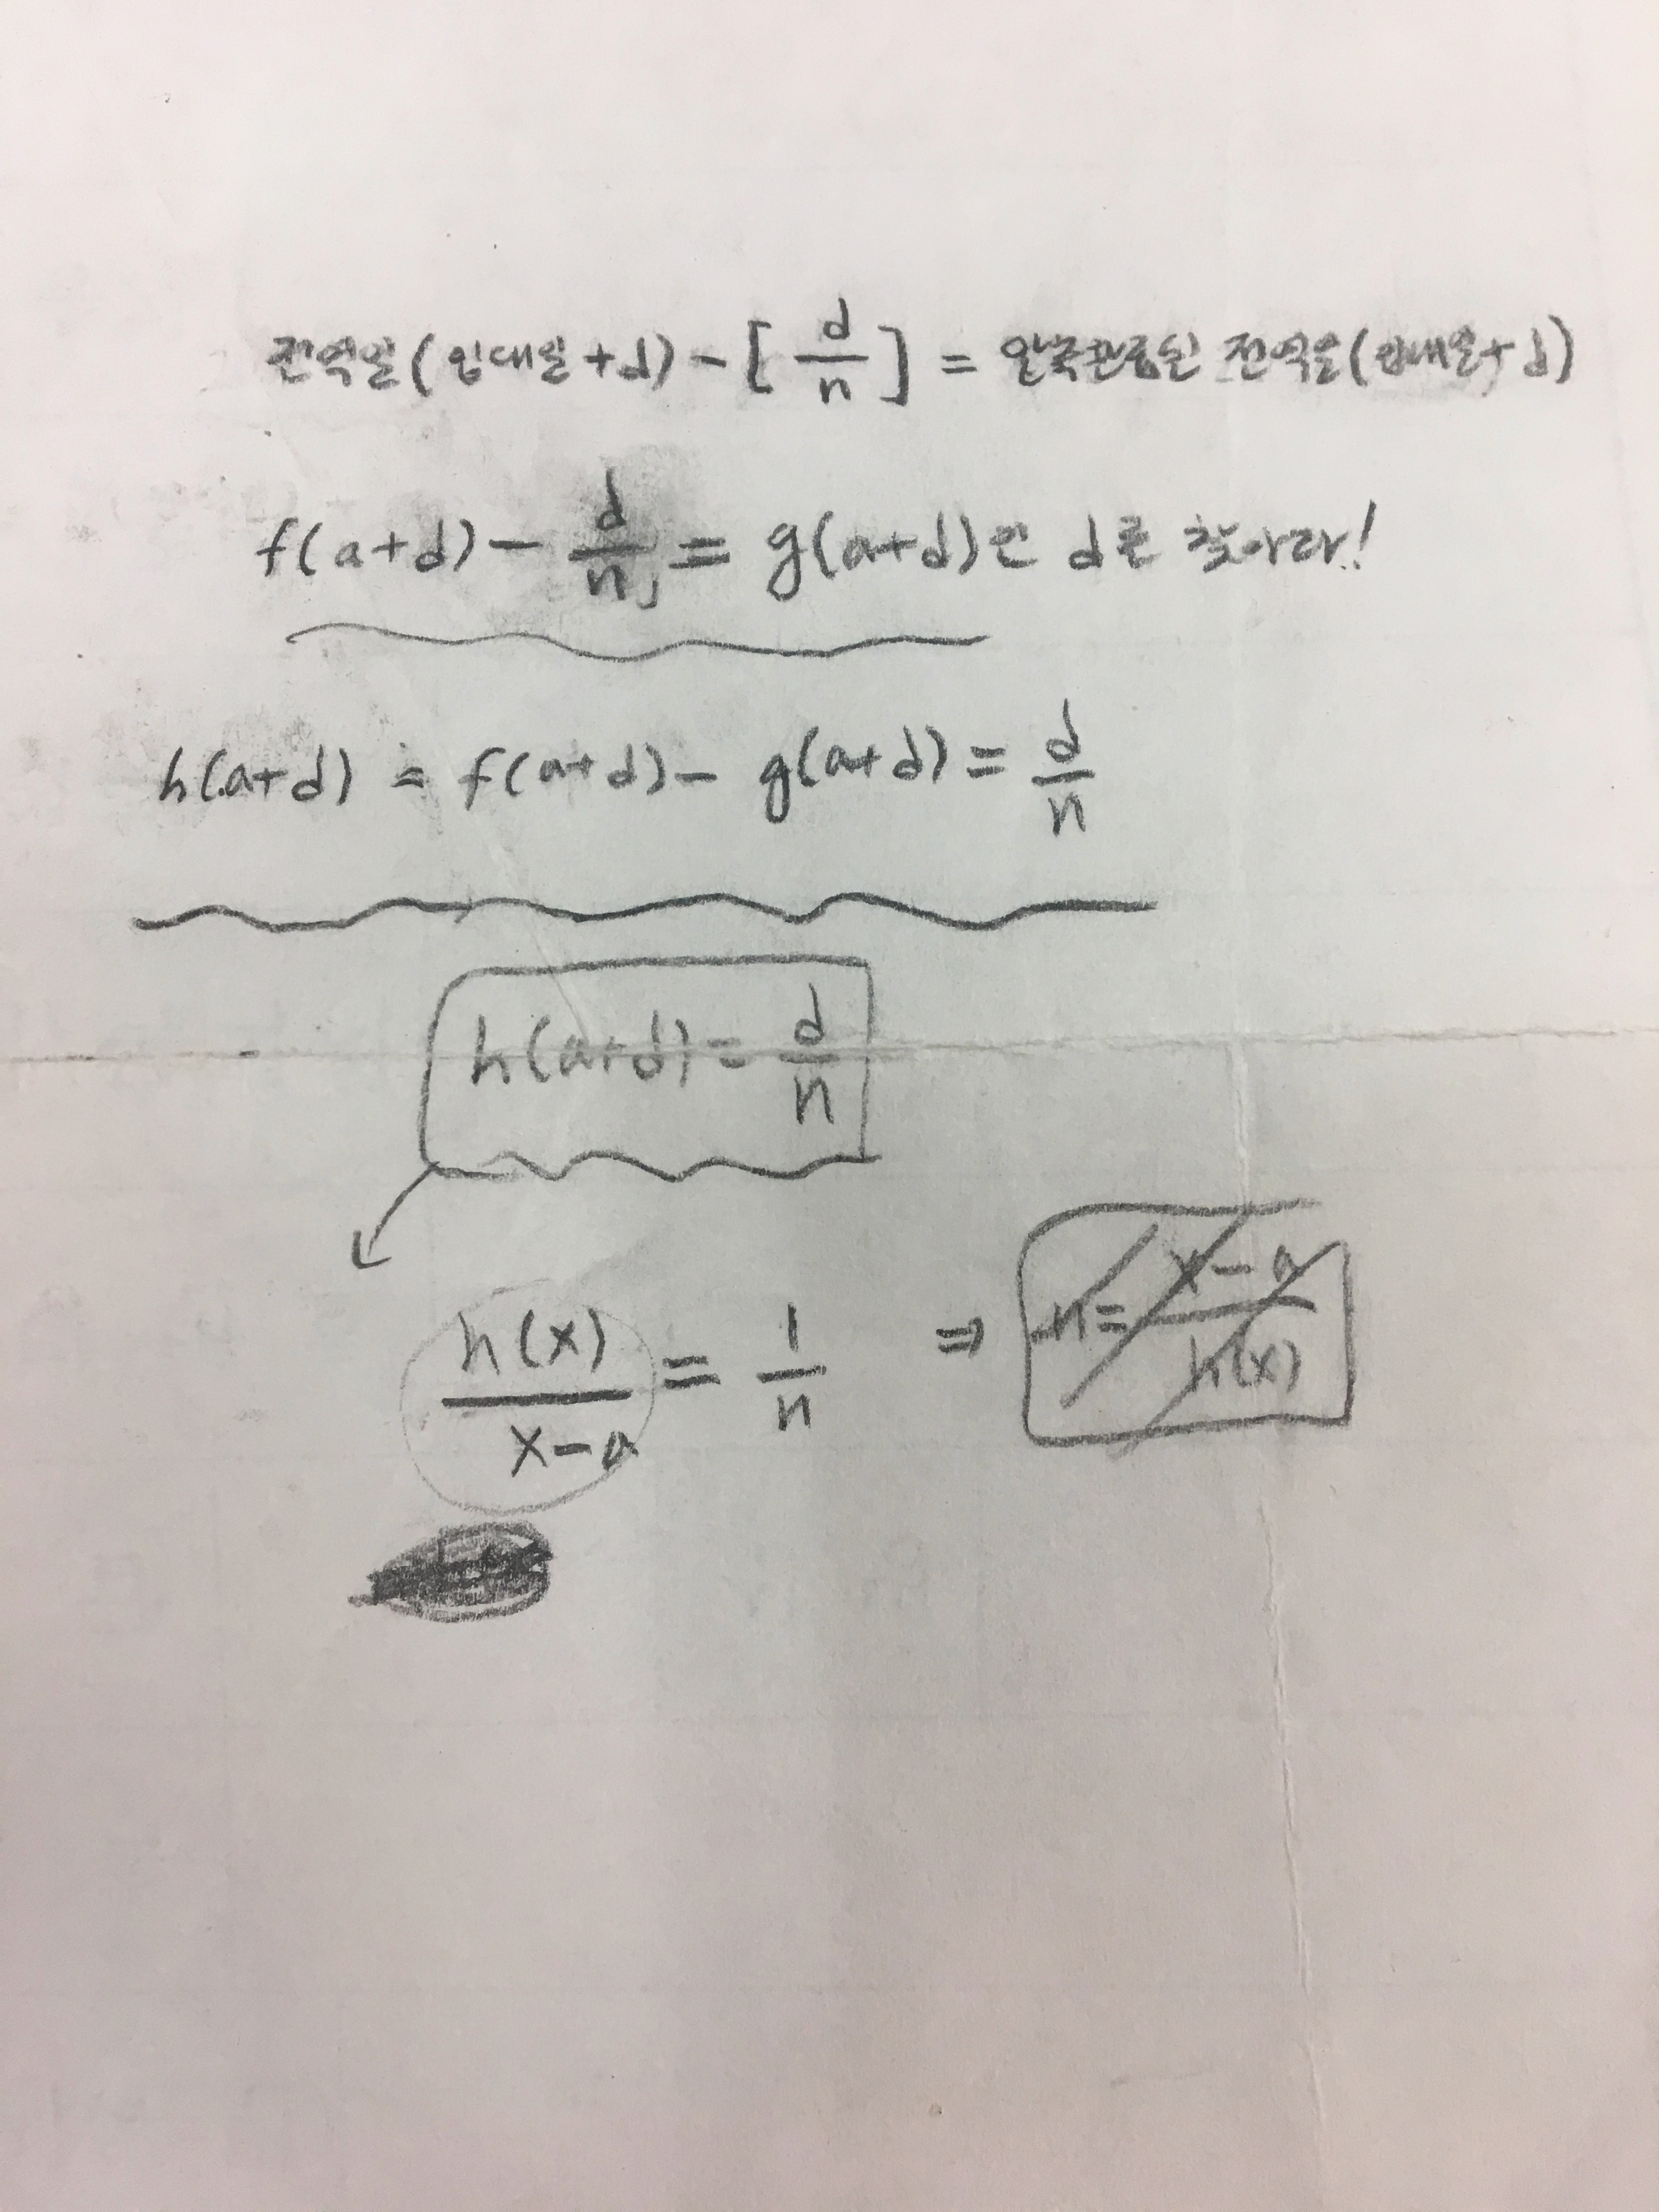 전역일(입대일+d) - [d/n] = 압축된 전역일(입대일+d)
f(a+d) - d/n = g(a+d)인 d를 찾아라!
h(a+d) = f(a+d) - g(a+d) = d/n
h(a+d) = d/n
h(x)/(x-a) = 1/n ⇒ n = (x-a)/h(x)